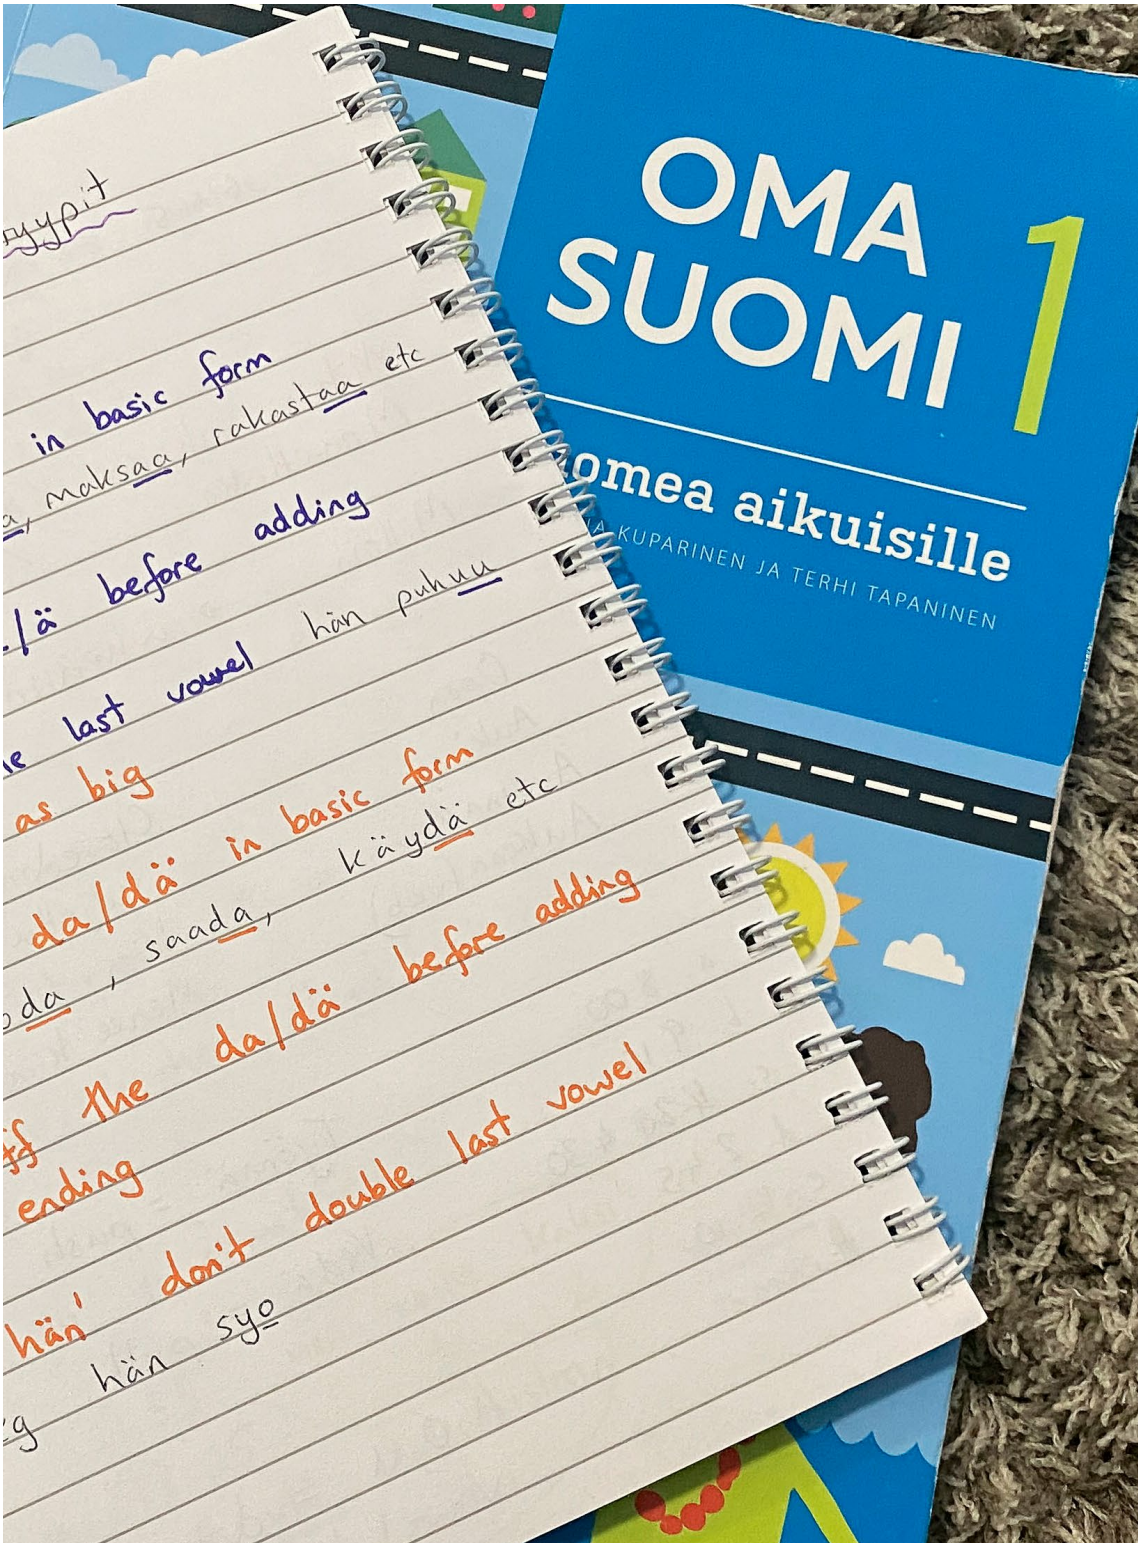 in basic form
maksaa, rakastaa etc
/ä before adding
last vowel hän puhuu
as big
da/dä in basic form
saada, käydä etc
the da/dä before adding
ending
hän' don't double last vowel
hän syo
OMA
SUOMI 1
omea aikuisille
KUPARINEN JA TERHI TAPANINEN